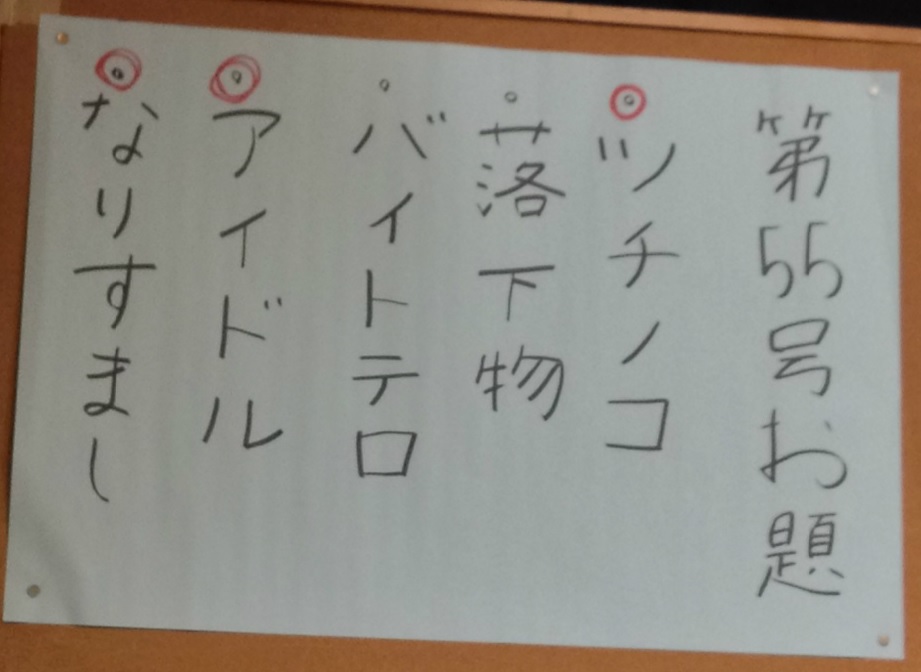 第55号お題
・ツチノコ
・落下物
・バイトテロ
・アイドル
・なりすまし